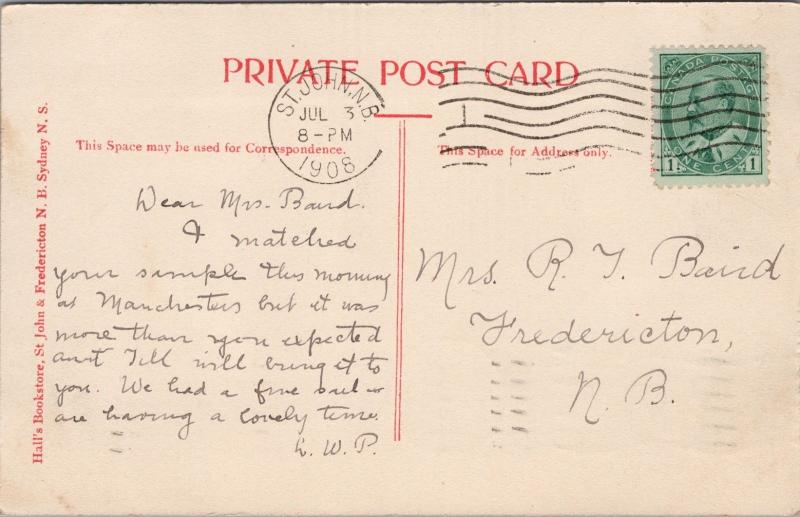 PRIVATE POST CARD
ST. JOHN, N.B.
JUL 3
8 - PM
1908
CANADA POSTAGE
ONE CENT
1 1
This Space may be used for Correspondence.
This Space for Address only.
Hall's Bookstore, St John & Fredericton N. B. Sydney N. S.
Dear Mrs. Baird.
I matched
your sample this morning
at Manchesters but it was
more than you expected
aunt Till will bring it to
you. We had a fine sail &
are having a lovely time.
L. W. P.
Mrs. R. T. Baird
Fredericton,
N. B.